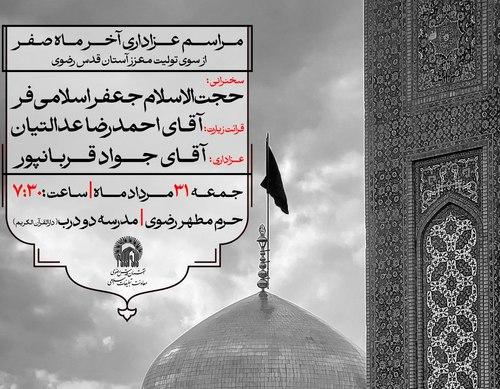 مراسم عزاداری آخر ماه صفر
از سوی تولیت معزز آستان قدس رضوی
سخنرانی:
حجت‌الاسلام جعفر اسلامی فر
قرائت زیارت: آقای احمدرضا عدالتیان
عزاداری: آقای جواد قربانپور
جمعه ۳۱ مرداد ماه | ساعت: ۷:۳۰
حرم مطهر رضوی | مدرسه دو درب (دارالقرآن الکریم)
معاونت تبلیغات اسلامی